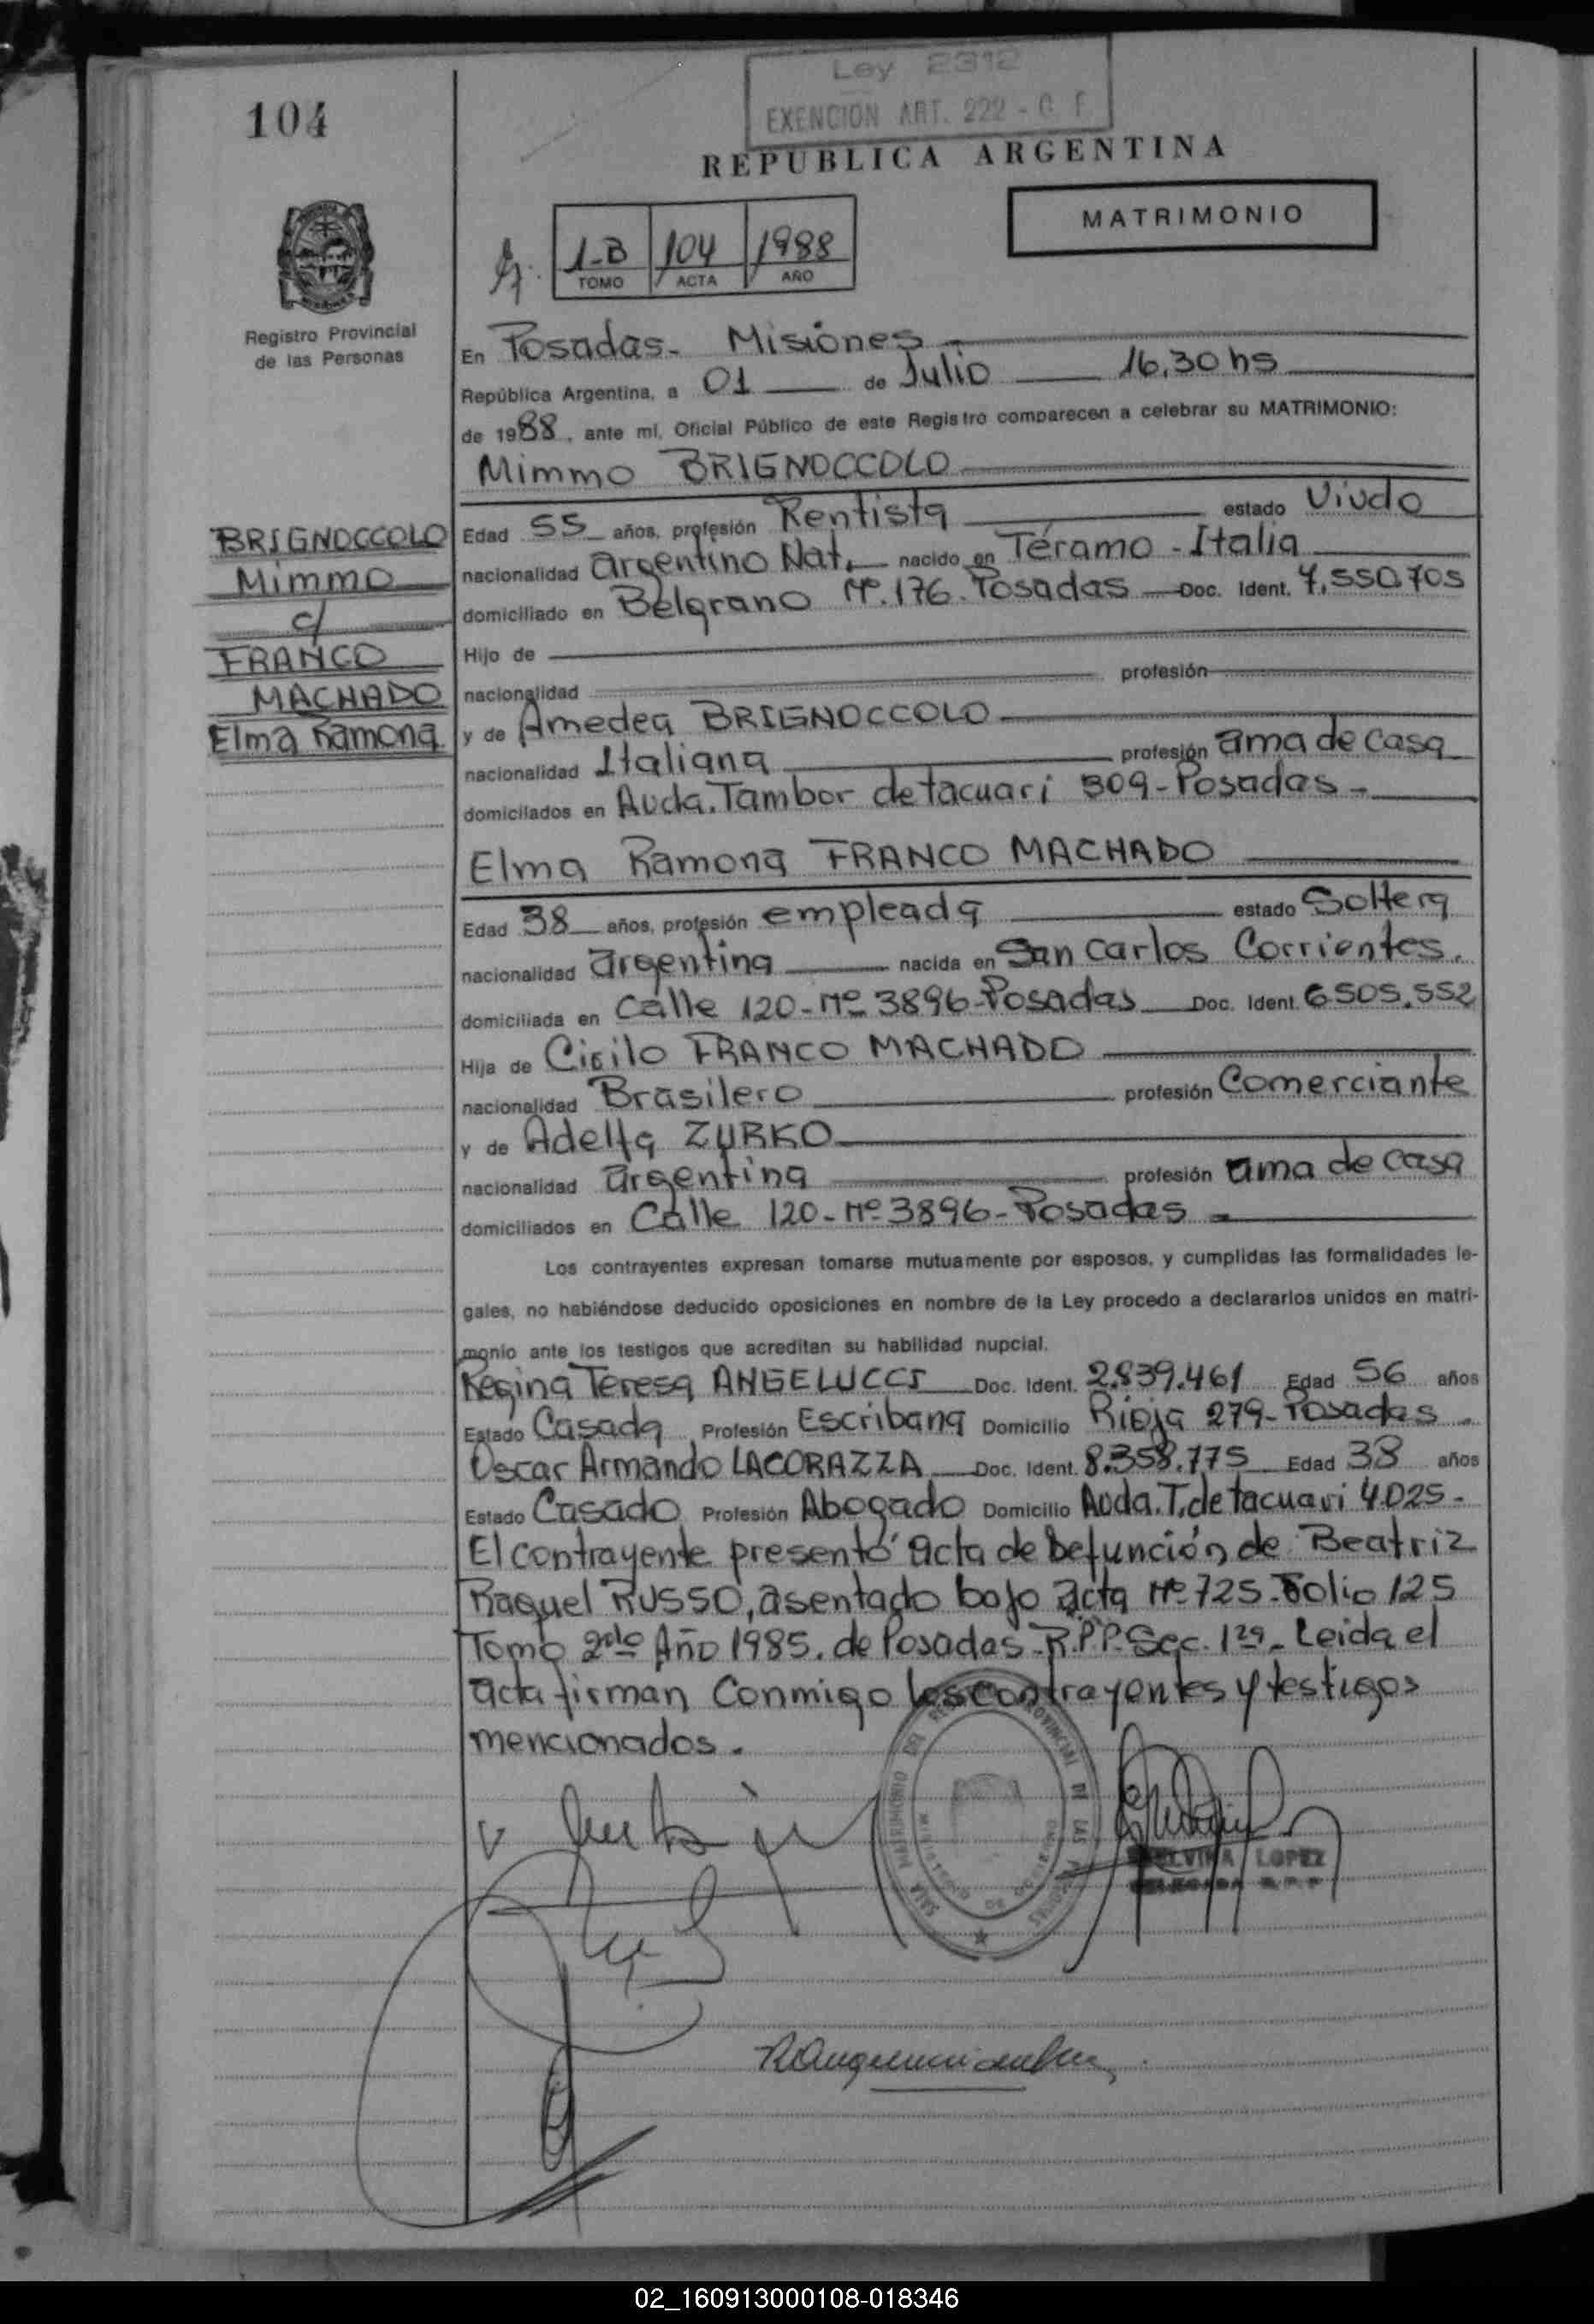 Ley 2312
EXENCION ART. 222 - C F
104
REPUBLICA ARGENTINA
MATRIMONIO
1-B 104 1988
TOMO ACTA AÑO
Registro Provincial
de las Personas
En Posadas - Misiones
República Argentina, a 01 de Julio 16,30 hs
de 1988, ante mí, Oficial Público de este Registro comparecen a celebrar su MATRIMONIO:
Mimmo BRIGNOCCOLO
Edad 55 años, profesión Rentista estado Viudo
nacionalidad argentino Nat. nacido en Téramo - Italia
domiciliado en Belgrano Nº. 176. Posadas Doc. Ident. 7.550.705
Hijo de
nacionalidad profesión
y de Amedea BRIGNOCCOLO
nacionalidad Italiana profesión ama de casa
domiciliados en Avda. Tambor de tacuari 309 - Posadas -
BRIGNOCCOLO
Mimmo
c/
FRANCO
MACHADO
Elma Ramona
Elma Ramona FRANCO MACHADO
Edad 38 años, profesión empleada estado Soltera
nacionalidad argentina nacida en San Carlos Corrientes.
domiciliada en Calle 120 - Nº 3896 - Posadas Doc. Ident. 6.505.552
Hija de Cirilo FRANCO MACHADO
nacionalidad Brasilero profesión Comerciante
y de Adelfa ZURKO
nacionalidad argentina profesión ama de casa
domiciliados en Calle 120 - Nº 3896 - Posadas -
Los contrayentes expresan tomarse mutuamente por esposos, y cumplidas las formalidades le-
gales, no habiéndose deducido oposiciones en nombre de la Ley procedo a declararlos unidos en matri-
monio ante los testigos que acreditan su habilidad nupcial.
Regina Teresa ANGELUCCI Doc. Ident. 2.839.461 Edad 56 años
Estado Casada Profesión Escribana Domicilio Rioja 279 - Posadas -
Oscar Armando LACORAZZA Doc. Ident. 8.358.775 Edad 38 años
Estado Casado Profesión Abogado Domicilio Avda. T. de tacuari 4025 -
El contrayente presentó acta de defunción de Beatriz
Raquel RUSSO, asentado bajo acta Nº 725 - Folio 125
Tomo 2do Año 1985. de Posadas - R.P.P. Sec. 1ra - Leida el
acta firman Conmigo los contrayentes y testigos
mencionados.
LOPEZ
02_160913000108-018346